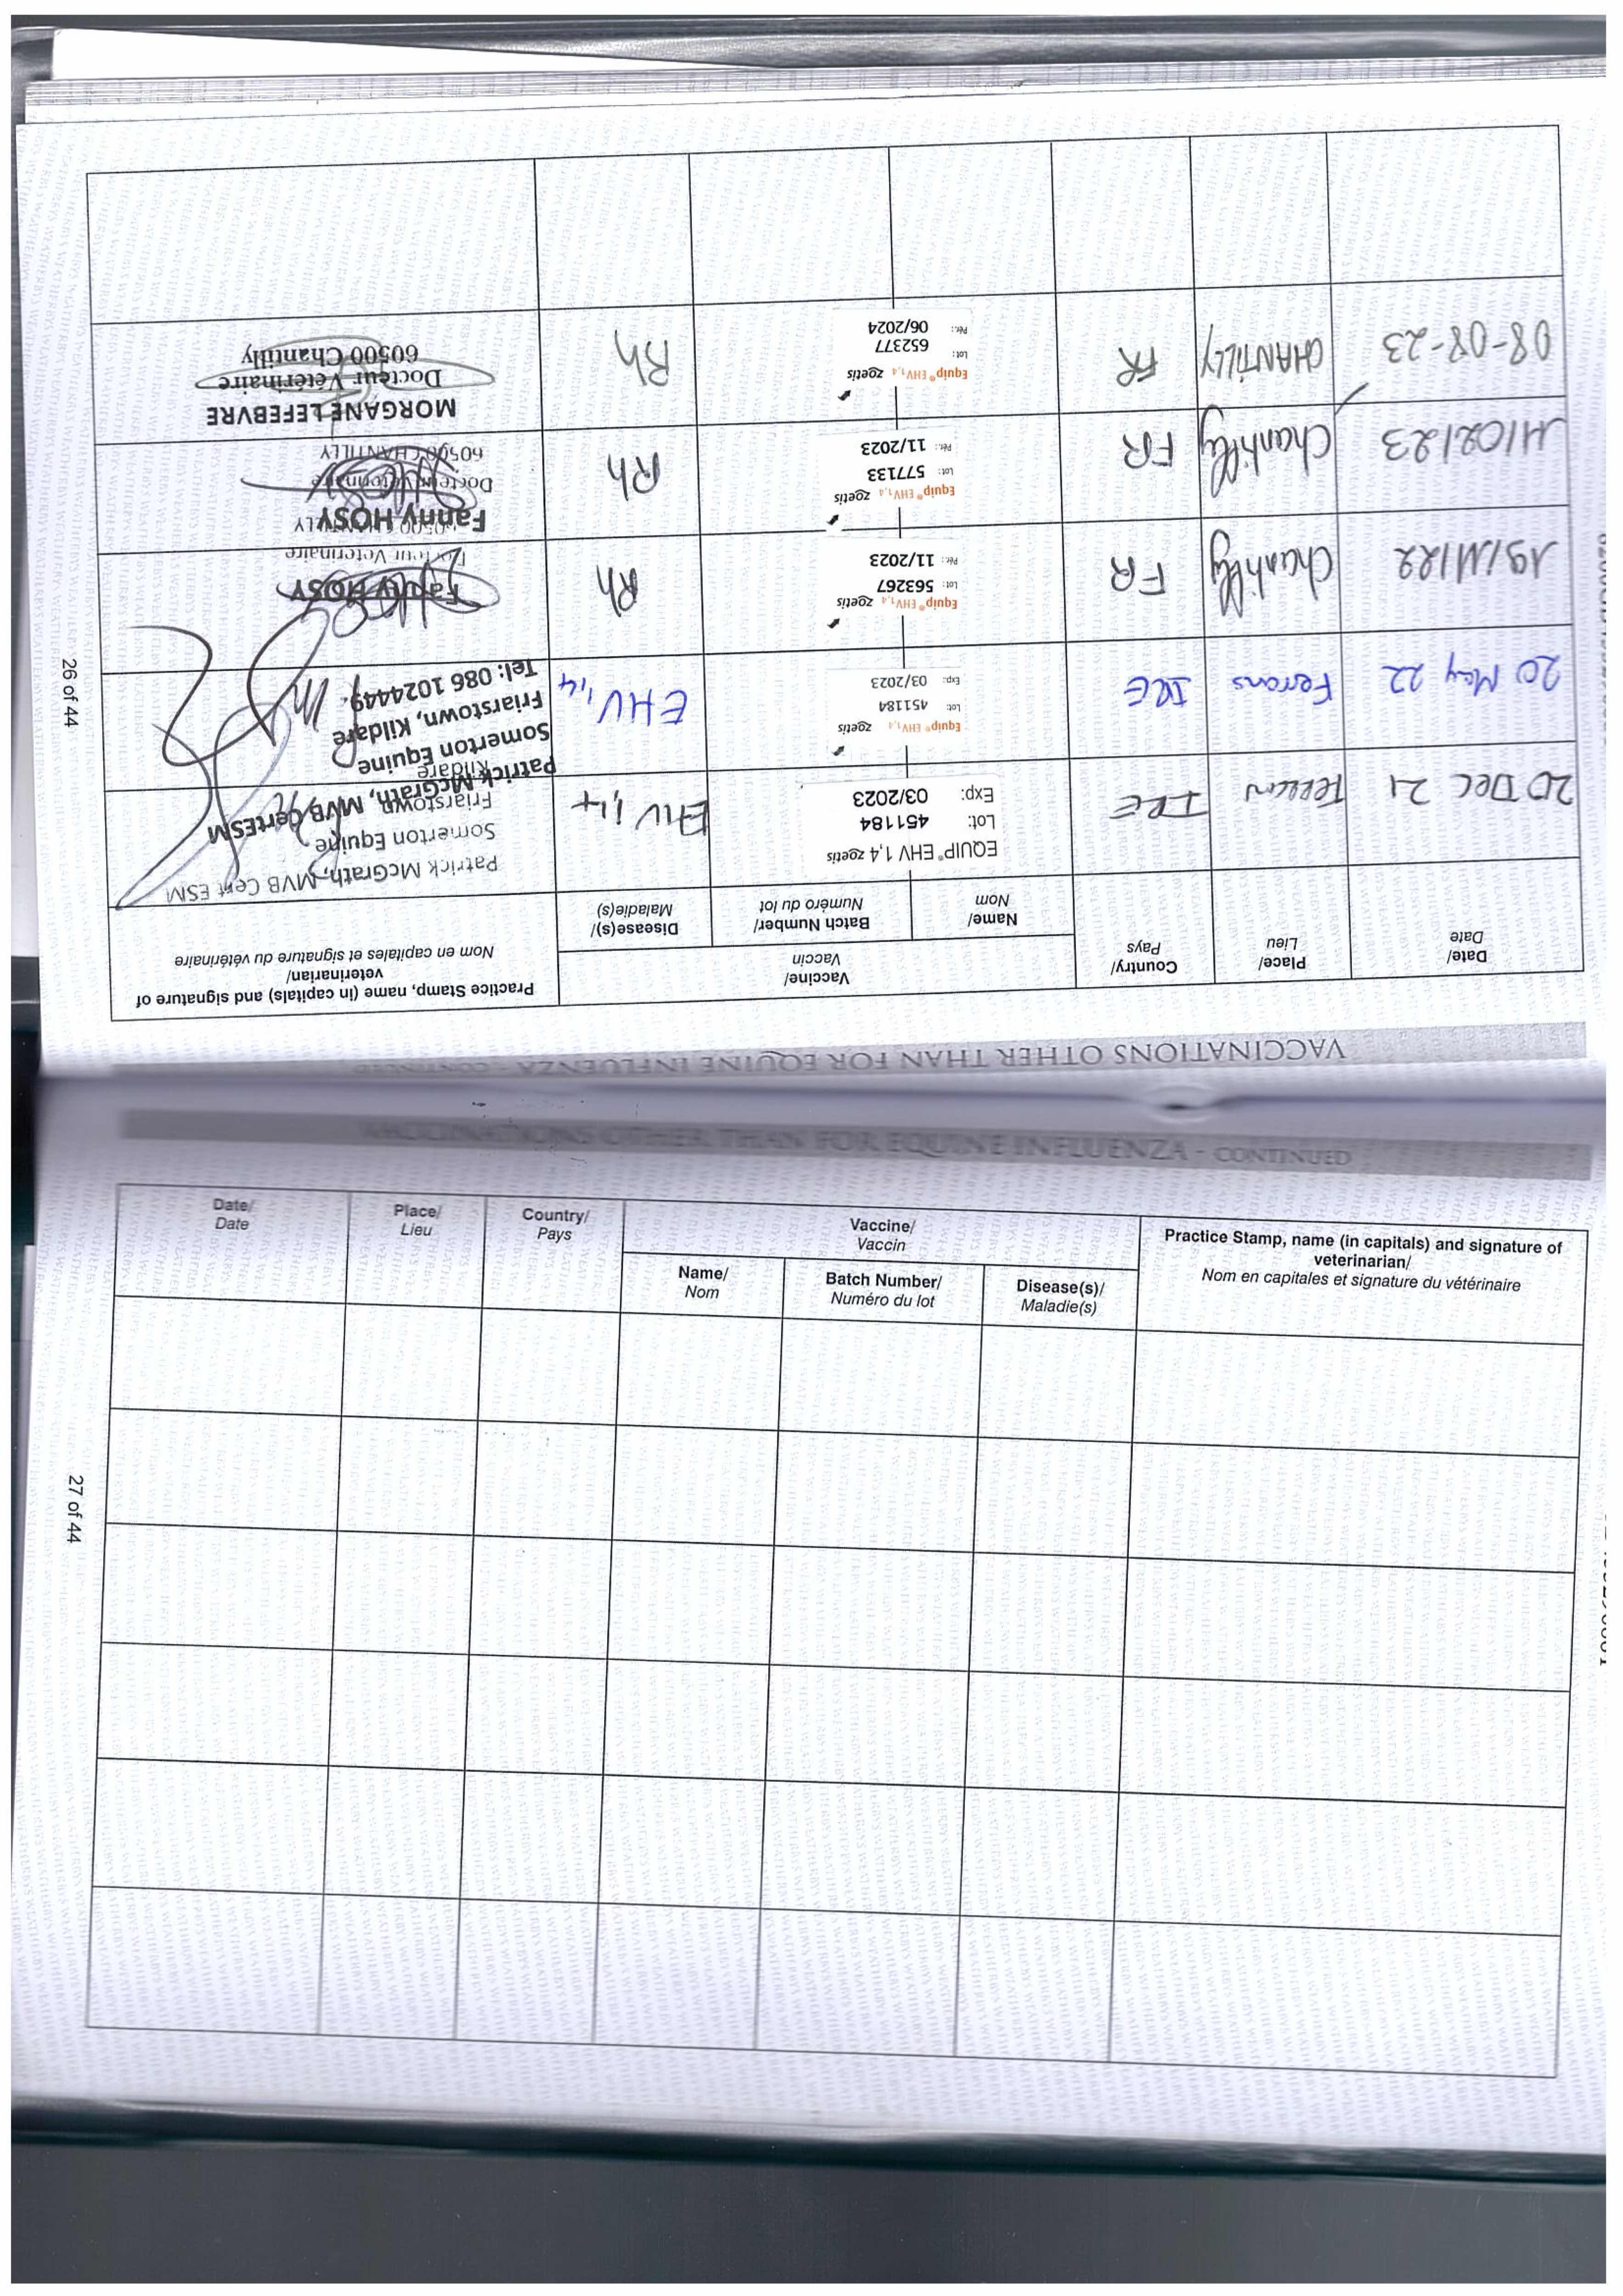 VACCINATIONS OTHER THAN FOR EQUINE INFLUENZA - CONTINUED
Date/ Date
Place/ Lieu
Country/ Pays
Vaccine/ Vaccin
Name/ Nom
Batch Number/ Numéro du lot
Disease(s)/ Maladie(s)
Practice Stamp, name (in capitals) and signature of
veterinarian/
Nom en capitales et signature du vétérinaire
20 Dec 21
IRE
EQUIP® EHV 1,4 zoetis
Lot: 451184
Exp: 03/2023
EHV 1,4
Patrick McGrath, MVB Cert ESM
Somerton Equine
Friarstown
Kildare
20 May 22
Ferrans
IRE
Equip® EHV1,4 zoetis
Lot: 451184
Exp: 03/2023
EHV 1,4
Patrick McGrath, MVB CertESM
Somerton Equine
Friarstown, Kildare
Tel: 086 1024449.
19/11/22
Chantilly
FR
Equip® EHV1,4 zoetis
Lot: 563267
Pér.: 11/2023
Rh
Fanny HOSY
Docteur Vétérinaire
60500 CHANTILLY
11/02/23
Chantilly
FR
Equip® EHV1,4 zoetis
Lot: 577133
Pér.: 11/2023
Rh
Fanny HOSY
Docteur Vétérinaire
60500 CHANTILLY
08-08-23
CHANTILLY
FR
Equip® EHV1,4 zoetis
Lot: 652377
Pér.: 06/2024
Rh
MORGANE LEFEBVRE
Docteur Vétérinaire
60500 Chantilly
26 of 44
VACCINATIONS OTHER THAN FOR EQUINE INFLUENZA - CONTINUED
Date/ Date
Place/ Lieu
Country/ Pays
Vaccine/ Vaccin
Name/ Nom
Batch Number/ Numéro du lot
Disease(s)/ Maladie(s)
Practice Stamp, name (in capitals) and signature of
veterinarian/
Nom en capitales et signature du vétérinaire
27 of 44